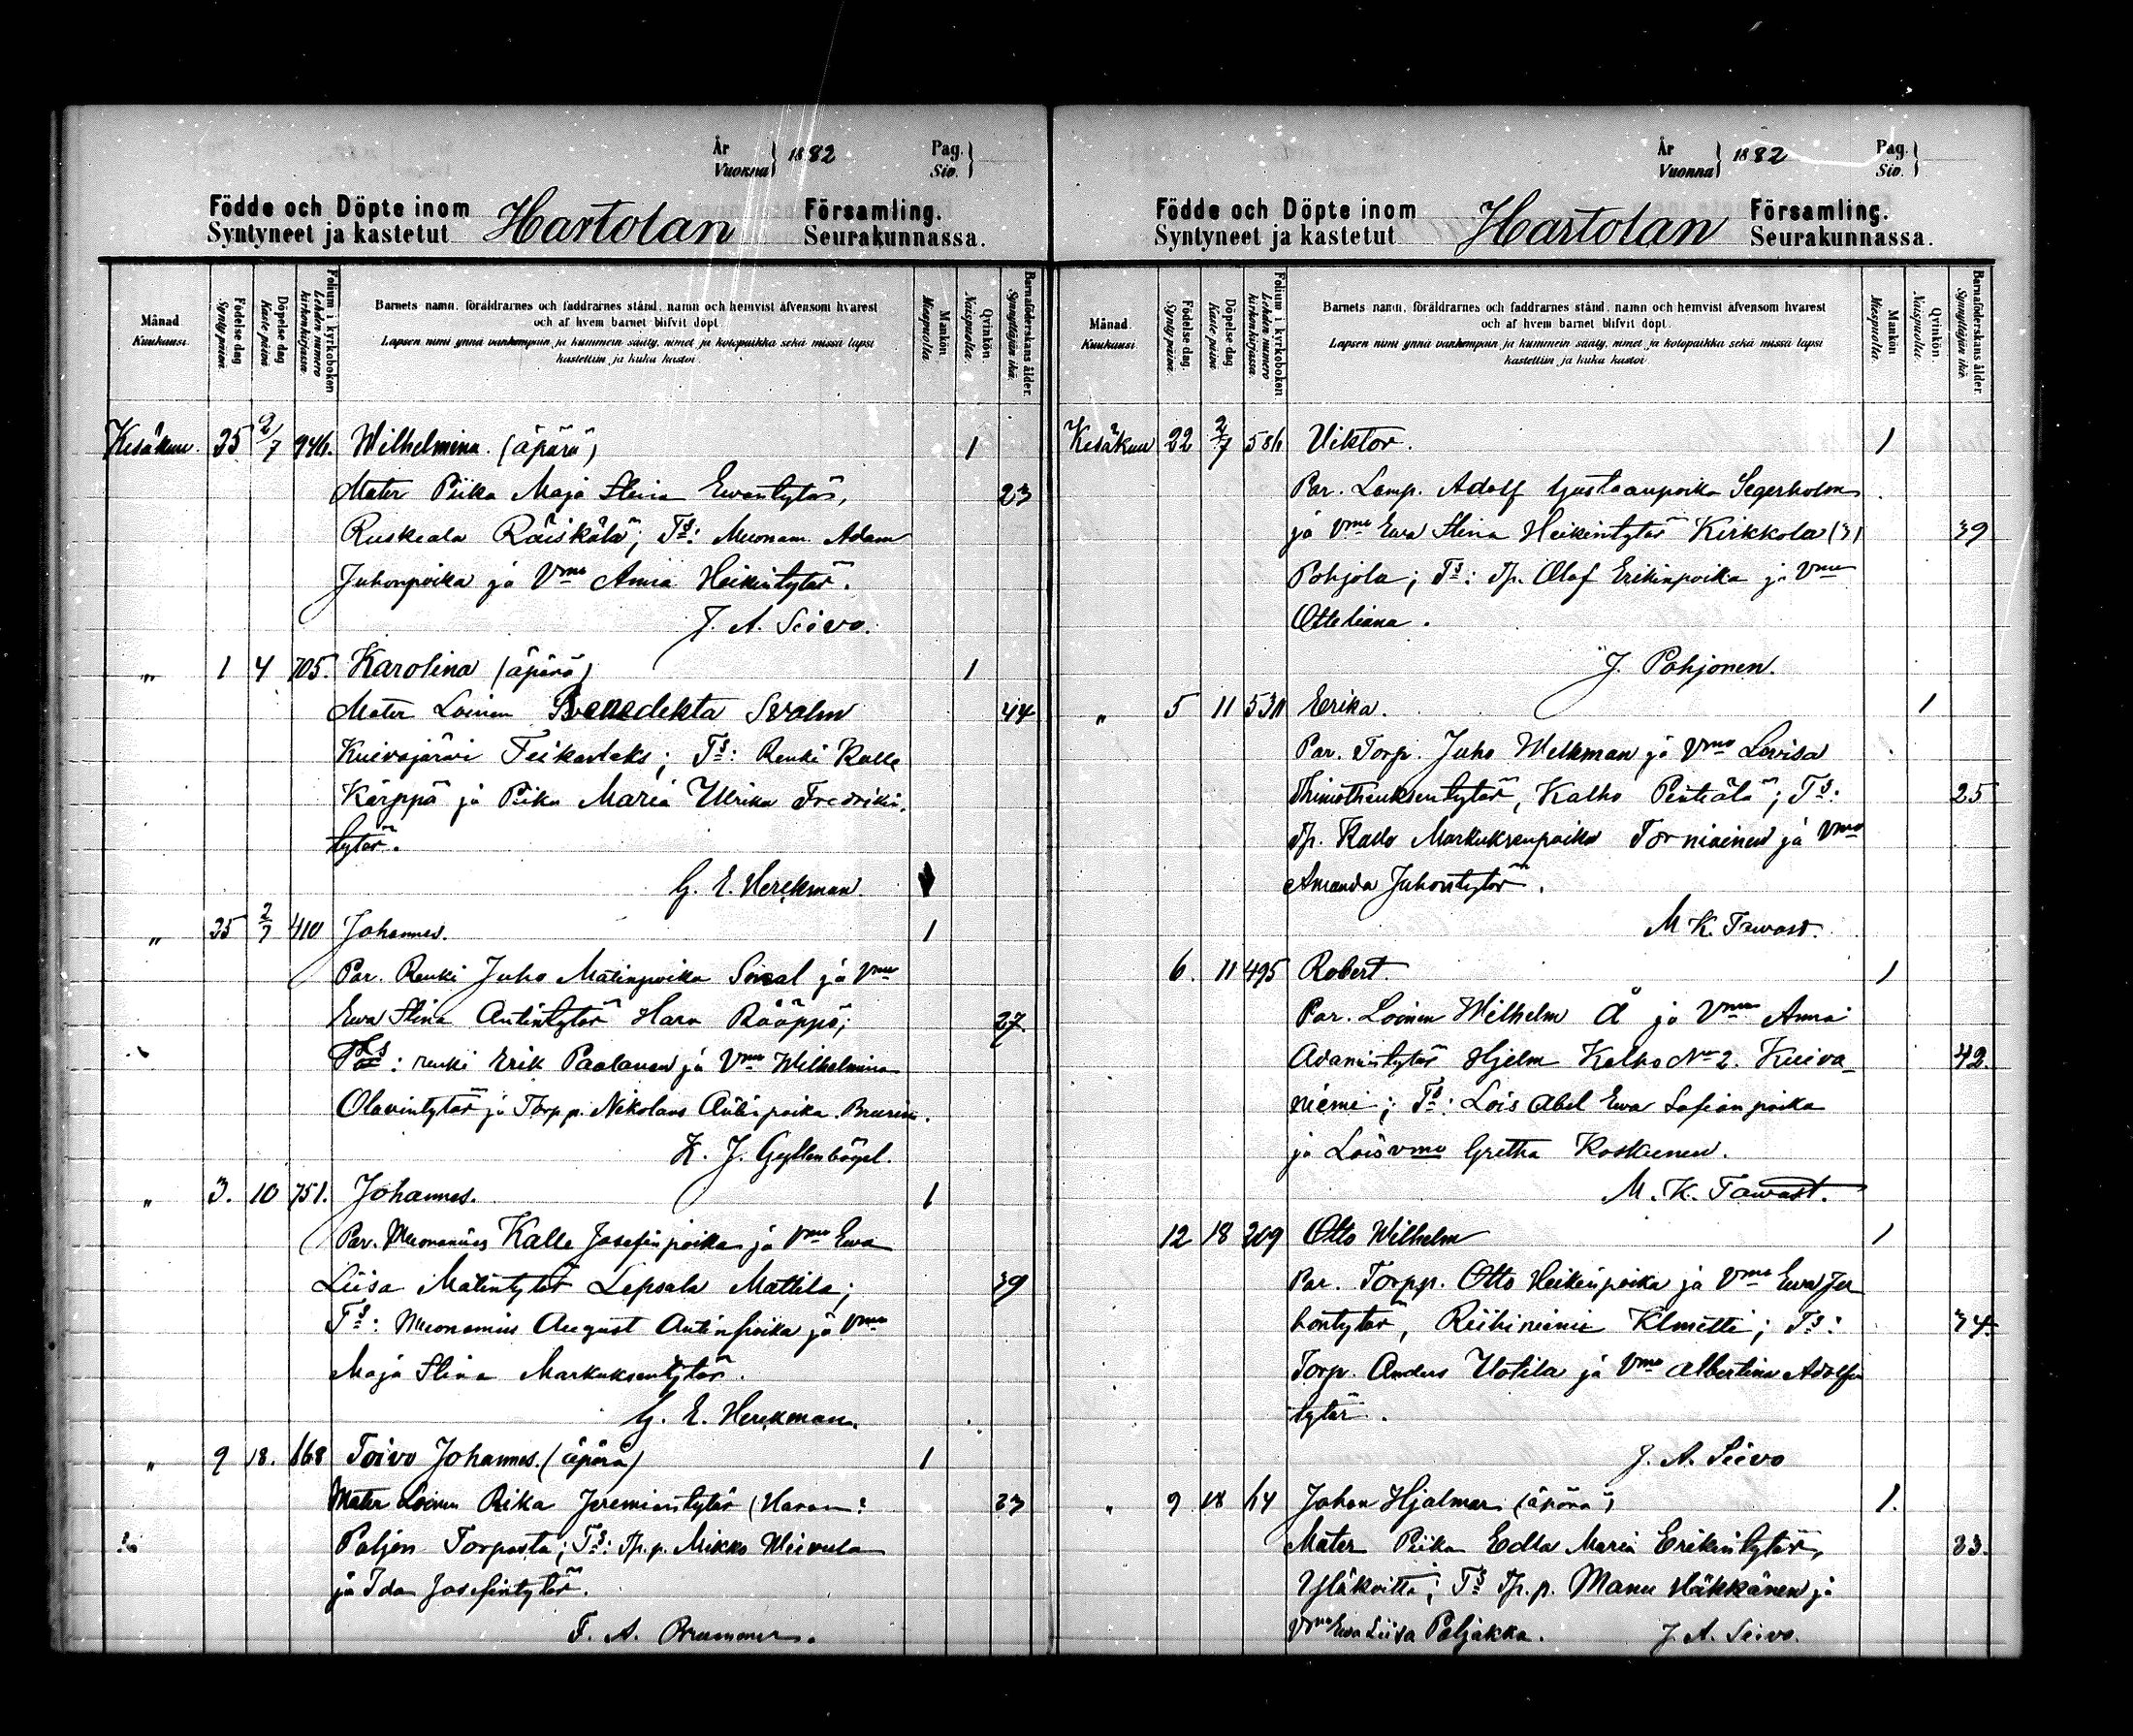 År
Vuonna } 1882
Pag.
Siv. }
Födde och Döpte inom Hartolan Församling.
Syntyneet ja kastetut Seurakunnassa.
Månad.
Kuukausi.
Födelse dag
Synty päivä.
Döpelse dag
Kaste päivä
Folium i kyrkoboken
Lehden numero kirkonkirjassa.
Barnets namn, föräldrarnes och faddrarnes stånd, namn och hemvist äfvensom hvarest
och af hvem barnet blifvit döpt.
Lapsen nimi ynnä vanhempain ja kummein sääty, nimet ja kotopaikka sekä missä lapsi
kastettiin ja kuka kastoi.
Mankön
Miespuolta.
Qvinkön.
Naispuolta.
Barnaföderskans ålder.
Synnyttäjän ikä.
Kesäkuu. 25 2/7 946. Wilhelmina. (äpärä) 1
Mater Piika Maja Stina Ewantytär, 23
Ruskeala Räiskälä; Ts: Muonam. Adam
Juhonpoika ja Vmo Anna Heikintytär.
J. A. Seivo.
„ 1 4 705. Karolina (äpärä) 1
Mater Loinen Benedekta Svalm 44
Kuivajärvi Feikarteks; Ts: Renki Kalle
Kärppä ja Piika Maria Ulrika Fredrikin-
tytär.
G. E. Herckman.
„ 25 2/7 410 Johannes. 1
Par. Renki Juho Matinpoika Sinal ja Vmo
Ewa Stina Antintytär Hara Rääppö; 27.
Ts: renki Erik Paalanen ja Vmo Wilhelmina
Olavintytär ja Torpp. Nikolaus Antinpoika
K. J. Gyllenbögel.
„ 3. 10 751. Johannes. 1
Par. Muonamies Kalle Josefinpoika ja Vmo Ewa
Liisa Matintytär Lepsala Mattila; 39
Ts: Muonamies August Antinpoika ja Vmo
Maja Stina Markuksentytär.
G. E. Herckman.
„ 9 18. 668 Toivo Johannes. (äpärä) 1
Mater Loinen Rika Jeremiantytär (Haran: 23
Paljon Torpasta; Ts: Tp. p. Mikko Wiivula
ja Ida Josefintytär.
F. A. Brummer.
År
Vuonna } 1882
Pag.
Siv. }
Födde och Döpte inom Hartolan Församling.
Syntyneet ja kastetut Seurakunnassa.
Månad.
Kuukausi.
Födelse dag.
Synty päivä.
Döpelse dag
Kaste päivä
Folium i kyrkoboken
Lehden numero kirkonkirjassa.
Barnets namn, föräldrarnes och faddrarnes stånd, namn och hemvist äfvensom hvarest
och af hvem barnet blifvit döpt.
Lapsen nimi ynnä vanhempain ja kummein sääty, nimet ja kotopaikka sekä missä lapsi
kastettiin ja kuka kastoi.
Mankön
Miespuolta.
Qvinkön.
Naispuolta.
Barnaföderskans ålder.
Synnyttäjän ikä.
Kesäkuu 22 2/7 586 Viktor. 1
Par. Lamp. Adolf Gustaanpoika Segerholm
ja Vmo Ewa Stina Heikintytär Kirkkola (3) 39
Pohjola; Ts: Tp. Olof Erikinpoika ja Vmo
Otteliana.
J. Pohjonen.
„ 5 11 530 Eerika. 1
Par. Torp. Juho Welkman ja Vmo Lovisa
Thimotheuksentytär, Kalho Penttälä; Ts: 25
Tp. Kalle Markuksenpoika Torniainen ja Vmo
Amanda Juhontytär.
M. K. Tawast.
6. 11 495 Robert. 1
Par. Loinen Wilhelm Å ja Vmo Anna
Adamintytär Hjelm Kalho No 2. Kuiva- 42.
niemi; Ts: Lois Abel Ewa Sofianpoika
ja Loisvmo Gretha Koskunen.
M. K. Tawast.
12 18 209 Otto Wilhelm 1
Par. Torpp. Otto Heikinpoika ja Vmo Ewa Ju-
hontytär, Riihiniemi Klmetti; Ts: 34.
Torp. Anders Uotila ja Vmo Albertina Adolfin
tytär.
J. A. Seivo
„ 9 18 64 Johan Hjalmar (äpärä) 1.
Mater Piika Edla Maria Erikintytär, 23.
Yläkoitti; Ts Tp. p. Manu Häkkänen ja
Vmo Ewa Liisa Paljakka. J. A. Seivo.